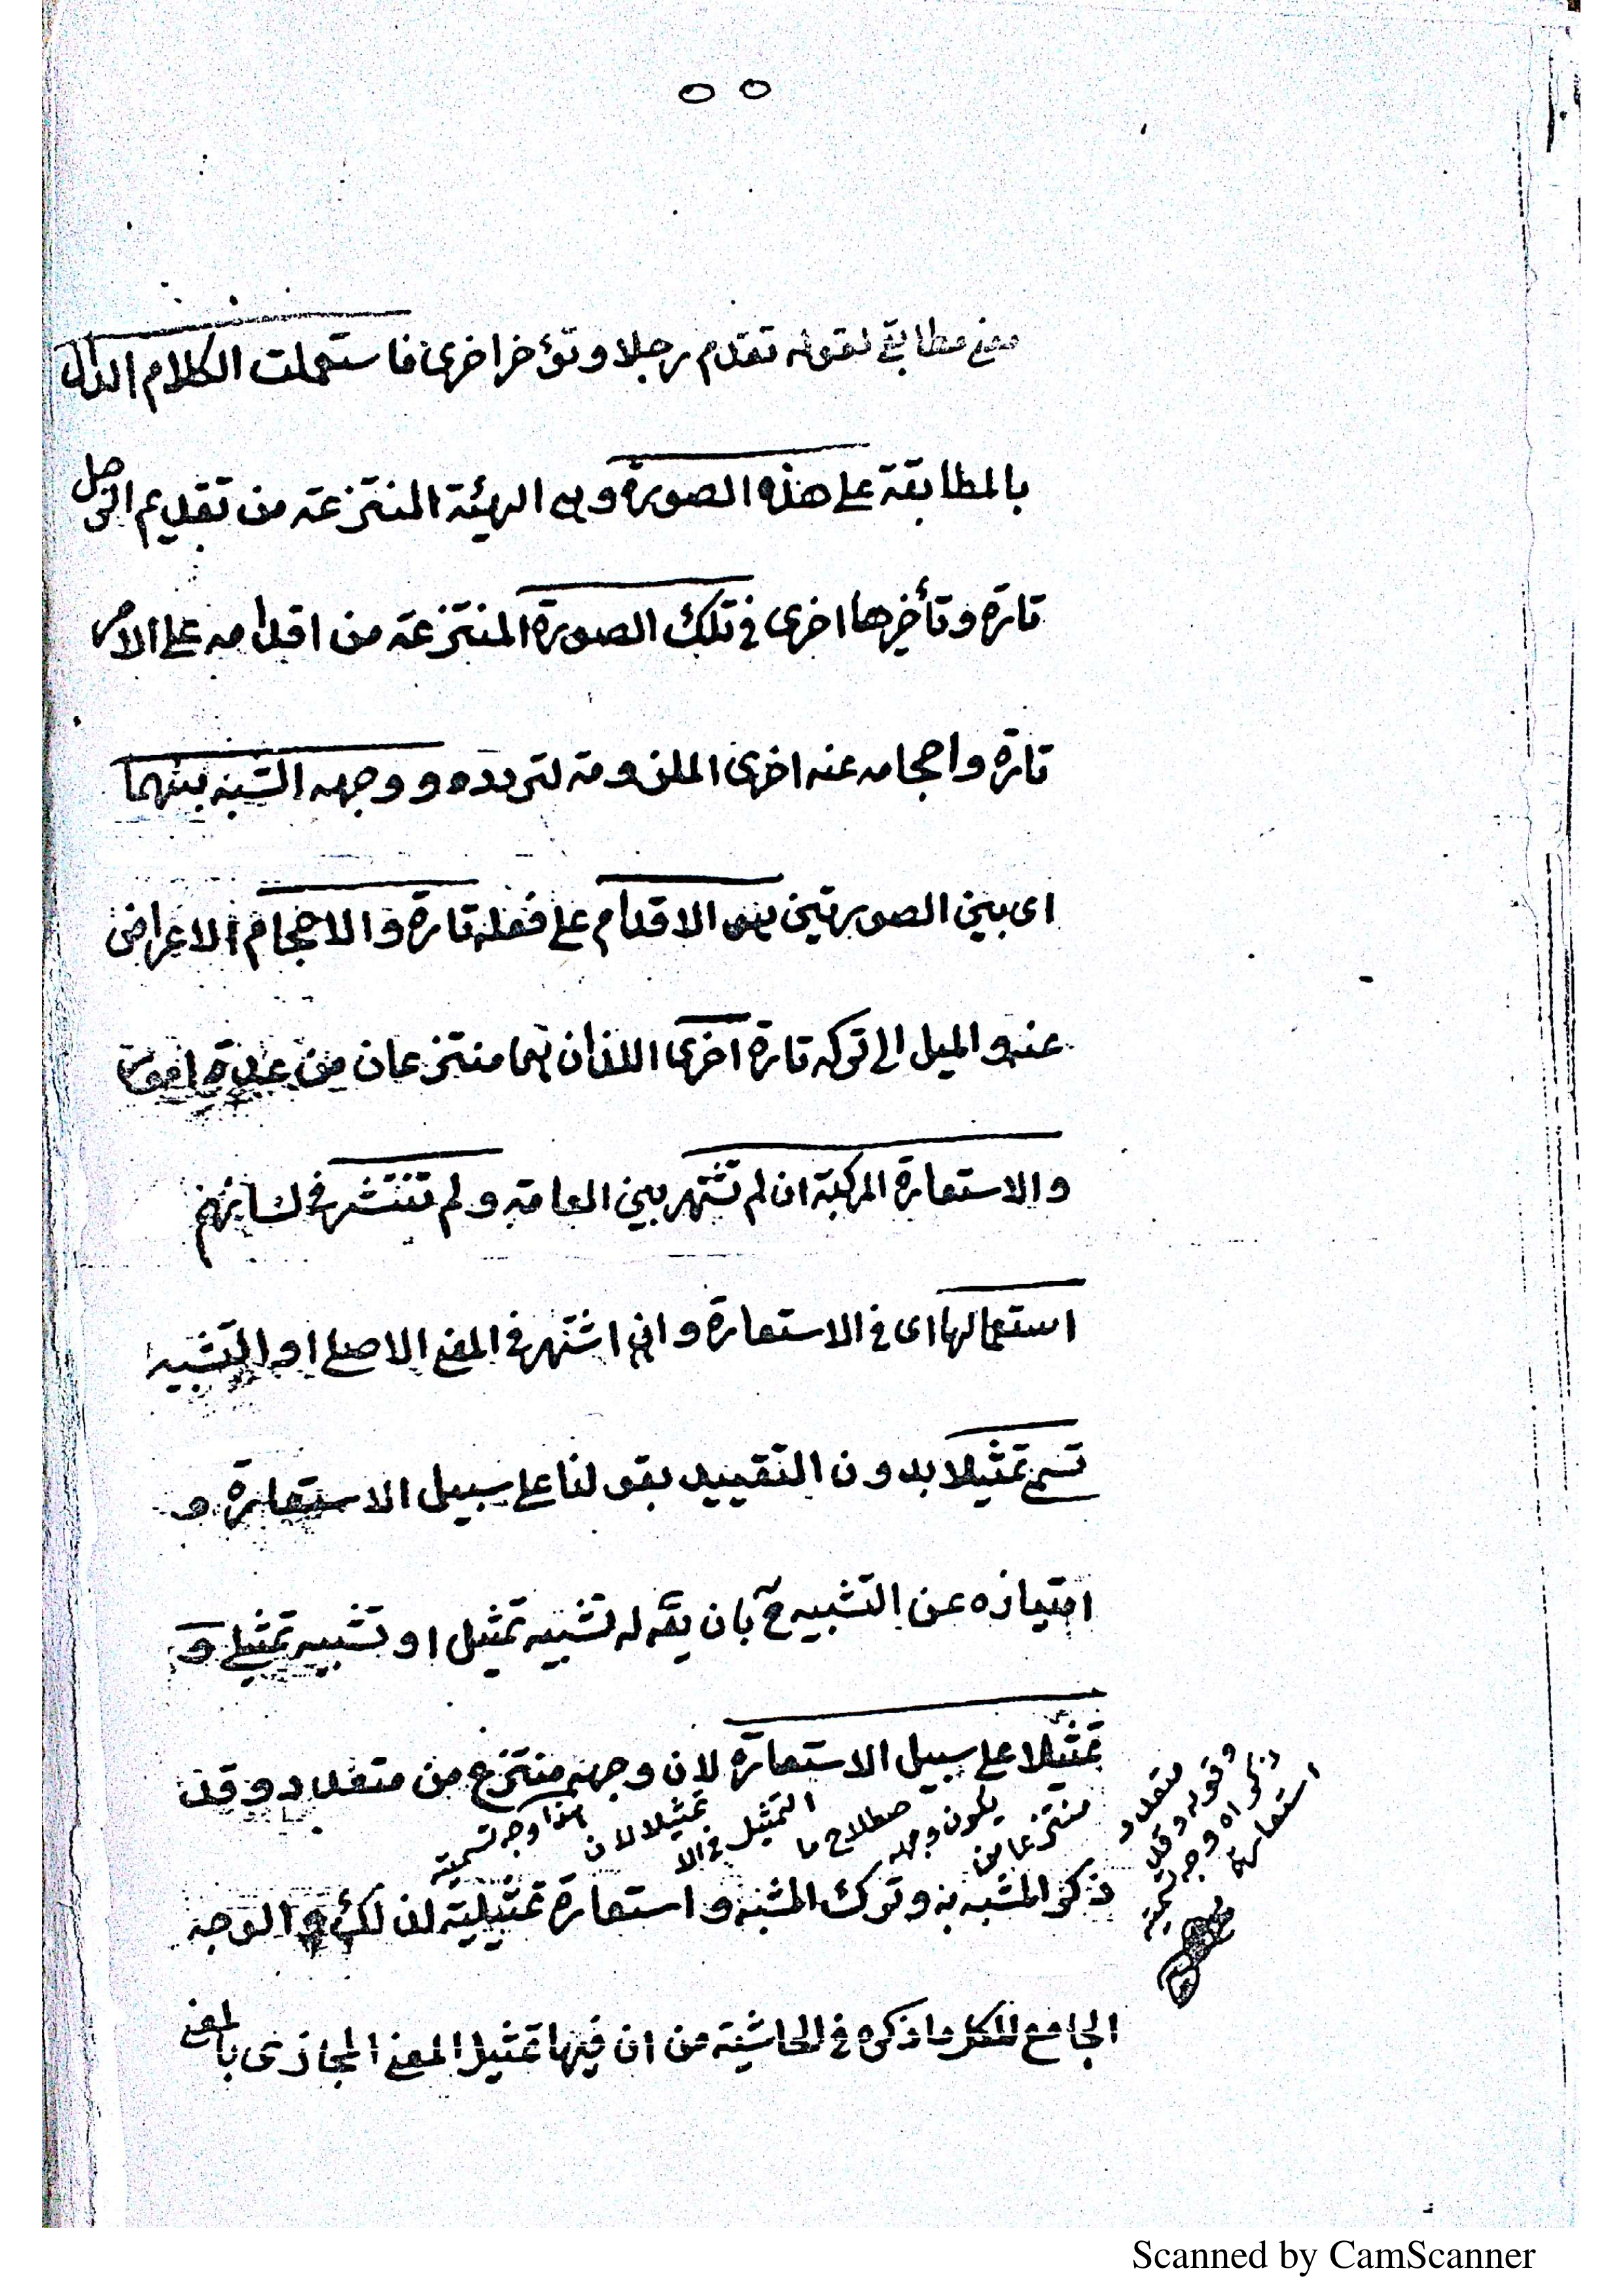 ٥٥
معنى مطابقي لقوله تقدم رجلا وتؤخر اخرى فاستعملت الكلام الدال
بالمطابقة على هذه الصورة وهى الهيئة المنتزعة من تقديم الرجل
تارة وتأخيرها اخرى في تلك الصورة المنتزعة من اقدامه على الامر
تارة واحجامه عنه اخرى الملزومة لتردده و وجه الشبه بينهما
اى بين الصورتين هو الاقدام على فعله تارة والاحجام الاعراض
عنه والميل الى تركه تارة اخرى اللذان هما منتزعان من عدة امور
والاستعارة المركبة ان لم تشتهر بين العامة ولم تنتشر في لسانهم
استعمالها اى في الاستعارة وان اشتهر في المعنى الاصلى او التشبيه
تسمى تمثيلا بدون التقييد بقولنا على سبيل الاستعارة و
امتيازه عن التشبيه ح بان يقه له تشبيه تمثيل او تشبيه تمثيلى و
تمثيلا على سبيل الاستعارة لان وجهه منتزع من متعدد وقد
هذا وجه تسمية
تمثيلا لان
التمثيل في الا
صطلاح ما
يكون وجهه
منتزعا من
متعدد
وقوله وقد
ذكر اه وجه تسمية
استعارة
ذكر المشبه به وترك المشبه واستعارة تمثيلية لذلك والوجه
الجامع للكل ما ذكره في الحاشية من ان فيها تمثيل المعنى المجازى بالمعنى
Scanned by CamScanner